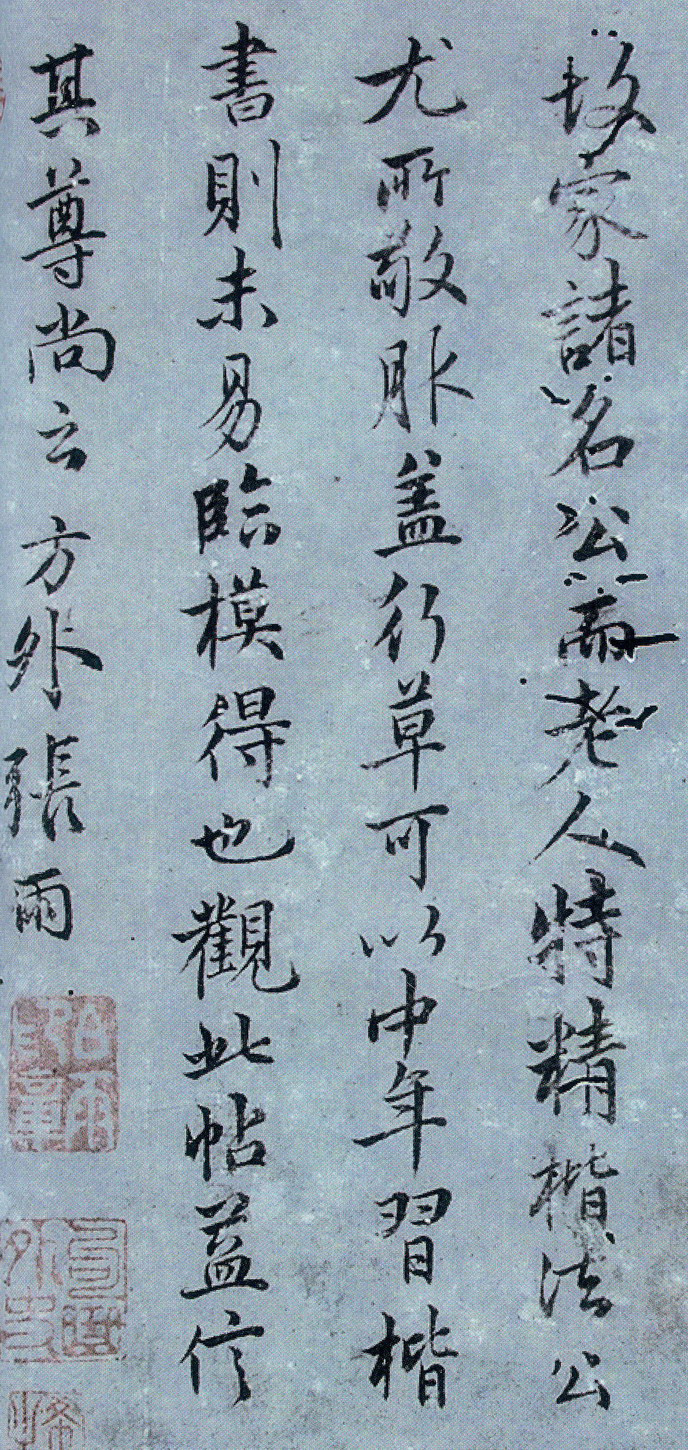 故家諸名公而老人特精楷法公
尤所敬服盖行草可以中年習楷
書則未易臨模得也觀此帖益信
其尊尚云方外張雨